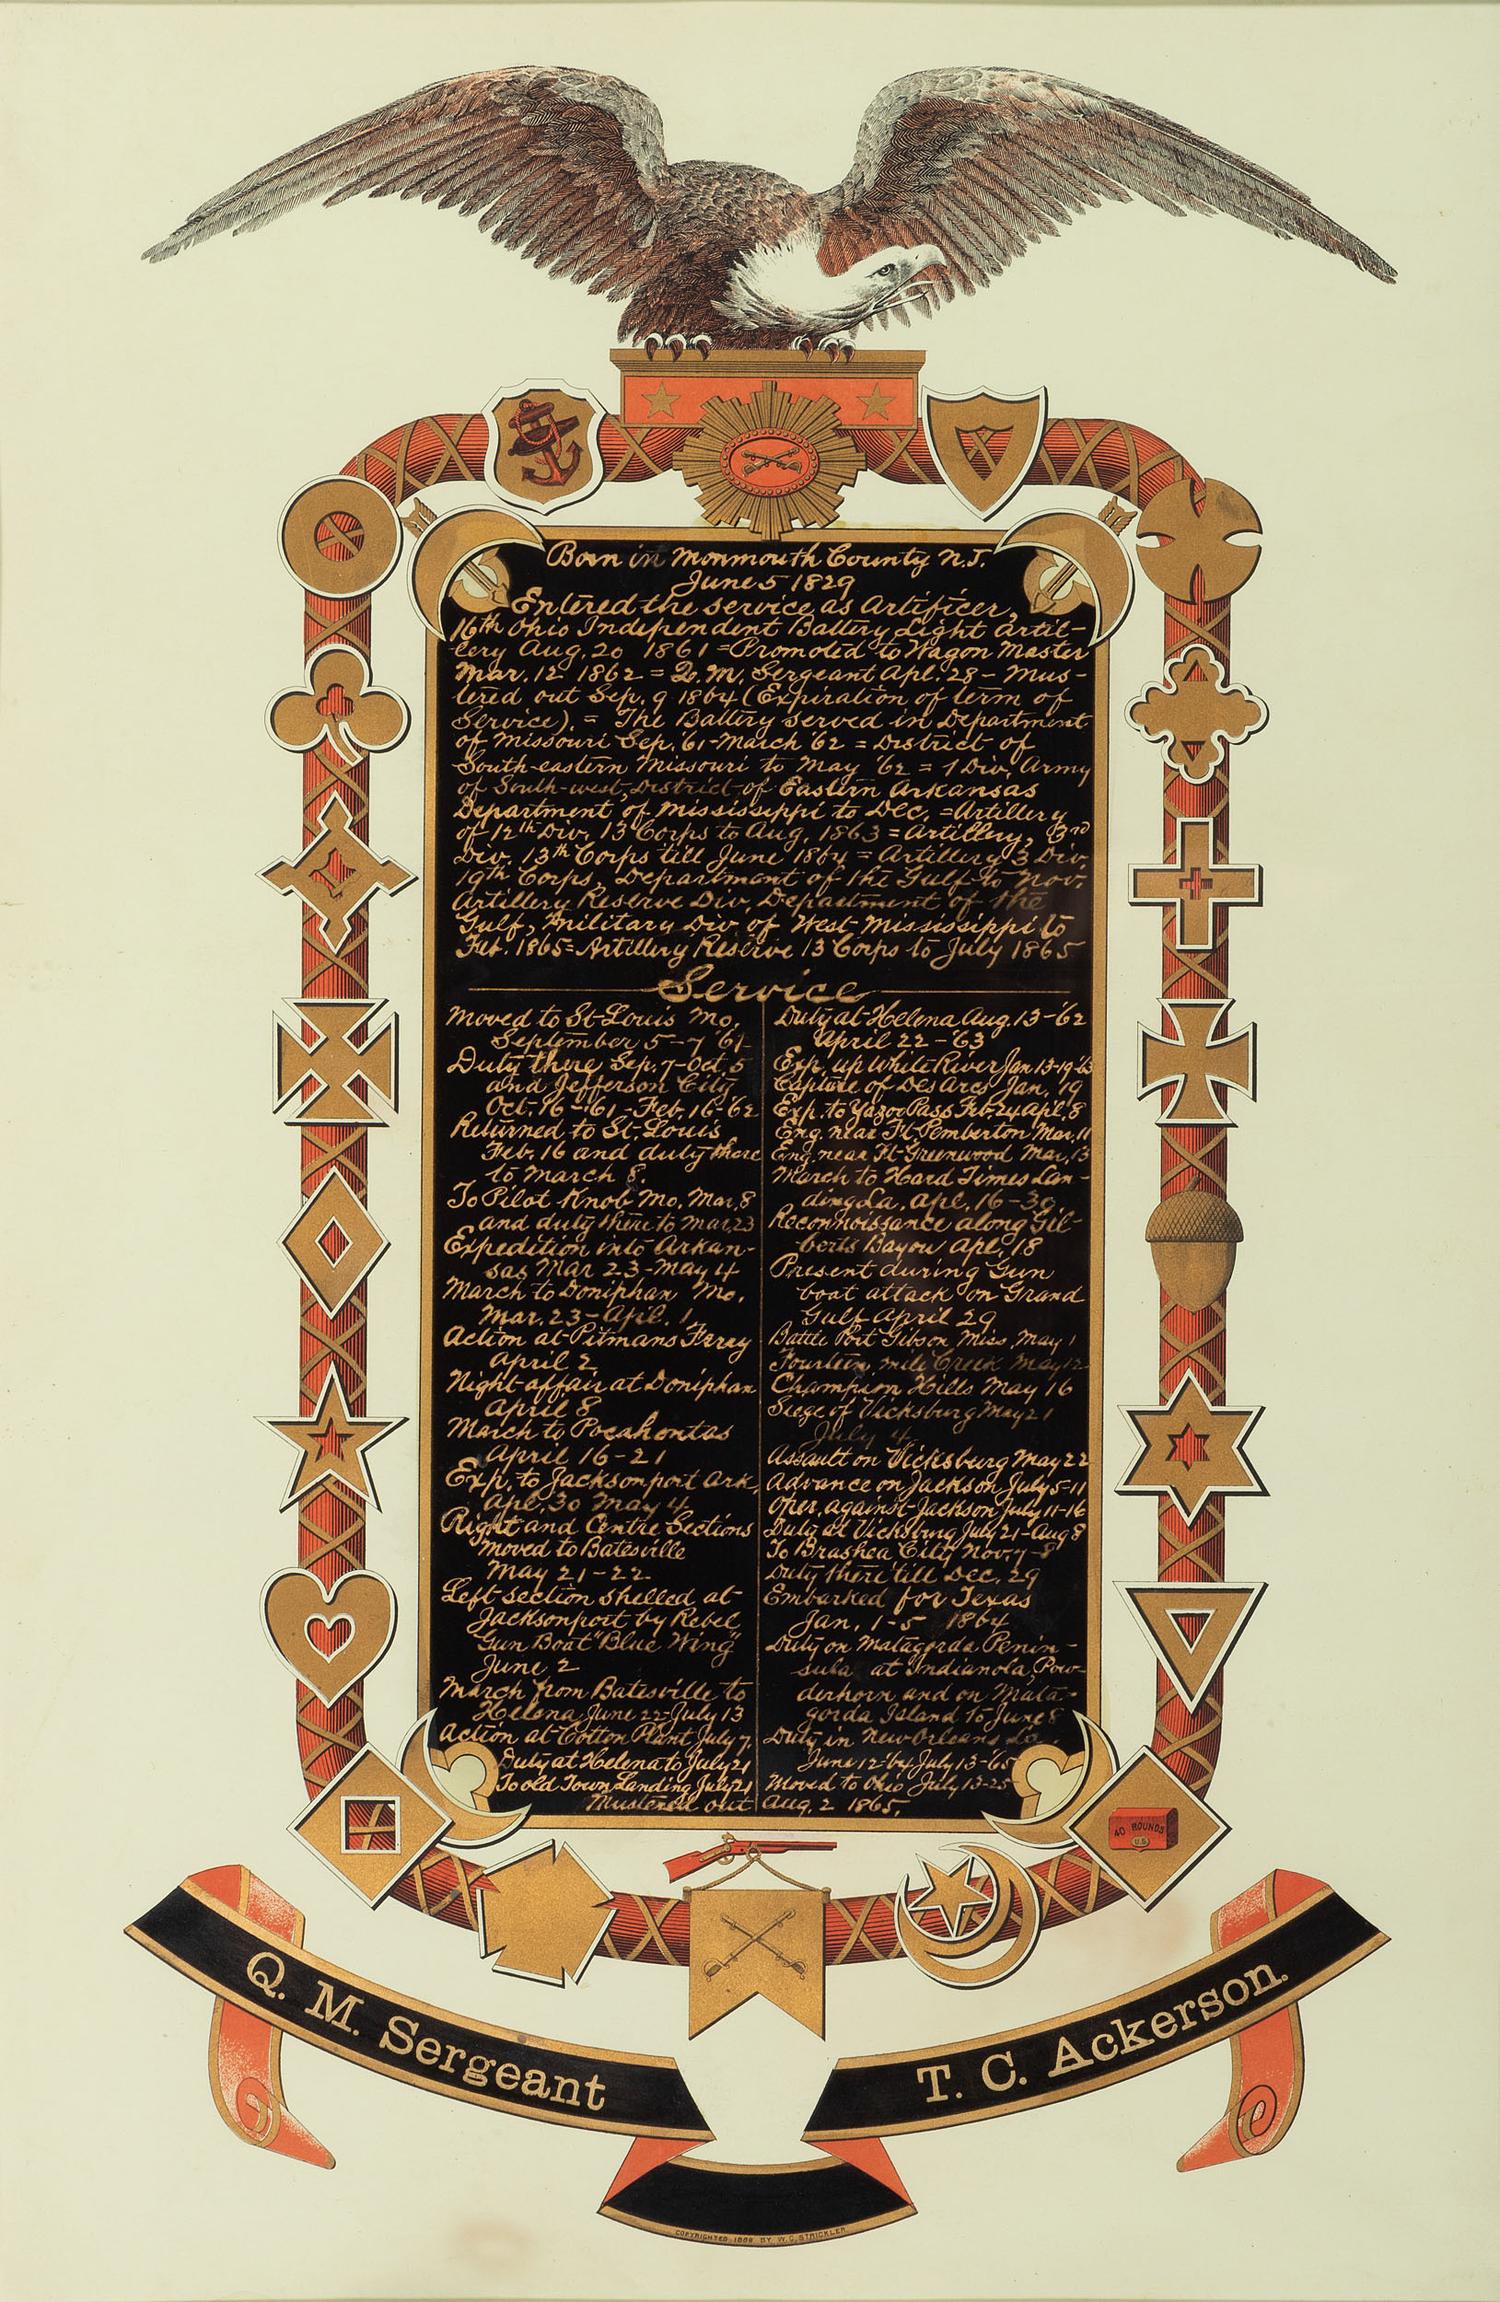 Born in Monmouth County N.J.
June 5 1829
Entered the service as Artificer,
16th Ohio Independent Battery Light Artil-
lery Aug. 20 1861 = Promoted to Wagon Master
Mar. 12 1862 = Q. M. Sergeant Apl. 28 - Mus-
tered out Sep. 9 1864 (Expiration of term of
Service). = The Battery served in Department
of Missouri Sep. '61 - March '62 = District of
South-eastern Missouri to May '62 = 1 Div. Army
of South-west, District of Eastern Arkansas
Department of Mississippi to Dec. = Artillery
of 12th Div. 13 Corps to Aug. 1863 = Artillery, 3rd
Div. 13th Corps till June 1864 = Artillery 3 Div.
19th Corps, Department of the Gulf to Nov.
Artillery Reserve Div. Department of the
Gulf, Military Div of West Mississippi to
Feb. 1865 = Artillery Reserve 13 Corps to July 1865
Service
Moved to St Louis Mo.
September 5-7 '61
Duty there Sep. 7 - Oct. 5
and Jefferson City
Oct. 16 - '61 - Feb. 16 - '62
Returned to St. Louis
Feb. 16 and duty there
to March 8.
To Pilot Knob Mo. Mar. 8
and duty there to Mar. 23
Expedition into Arkan-
sas Mar 23 - May 4
March to Doniphan Mo.
Mar. 23 - Apl. 1
Action at Pitmans Ferry
April 2
Night affair at Doniphan
April 8
March to Pocahontas
April 16-21
Exp. to Jacksonport Ark.
Apl. 30 May 4
Right and Centre Sections
moved to Batesville
May 21-22
Left section shelled at
Jacksonport by Rebel
Gun Boat "Blue Wing"
June 2
March from Batesville to
Helena June 22 - July 13
Action at Cotton Plant July 7.
Duty at Helena to July 21
To old Town Landing July 21
Mustered out
Duty at Helena Aug. 13 - '62
April 22 - '63
Exp. up White River Jan 13-19 '63
Capture of Des Arcs Jan. 19
Exp. to Yazoo Pass Feb. 24 Apl. 8
Eng. near Ft Pemberton Mar. 11
Eng. near Ft Greenwood Mar. 13
March to Hard Times Lan-
ding La. Apl. 16-30
Reconnoissance along Gil-
berts Bayou Apl. 18
Present during Gun
boat attack on Grand
Gulf April 29
Battle Port Gibson Miss. May 1
Fourteen mile Creek May 12
Champion Hills May 16
Siege of Vicksburg May 21
July 4
Assault on Vicksburg May 22
Advance on Jackson July 5-11
Oper. against Jackson July 11-16
Duty at Vicksburg July 21 - Aug 8
To Brashea City Nov. 7-8
Duty there till Dec. 29
Embarked for Texas
Jan. 1-5 1864
Duty on Matagorda Penin-
sula at Indianola, Pow-
derhorn and on Mata-
gorda Island to June 8
Duty in New Orleans La.
June 12 '64 July 13 - '65
Moved to Ohio July 13-25
Aug. 2 1865.
40 ROUNDS
U.S
Q. M. Sergeant
T. C. Ackerson.
COPYRIGHTED BY W. C. STRICKLER